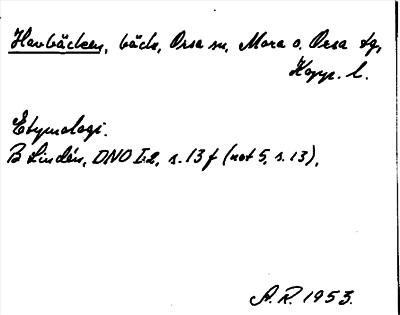 Havbäcken, bäck, Orsa sn, Mora o. Orsa tg,
Kopp. l.
Etymologi.
B Lindén, DNO I:2, s. 13 f (not 5, s. 13),
A. R. 1953.